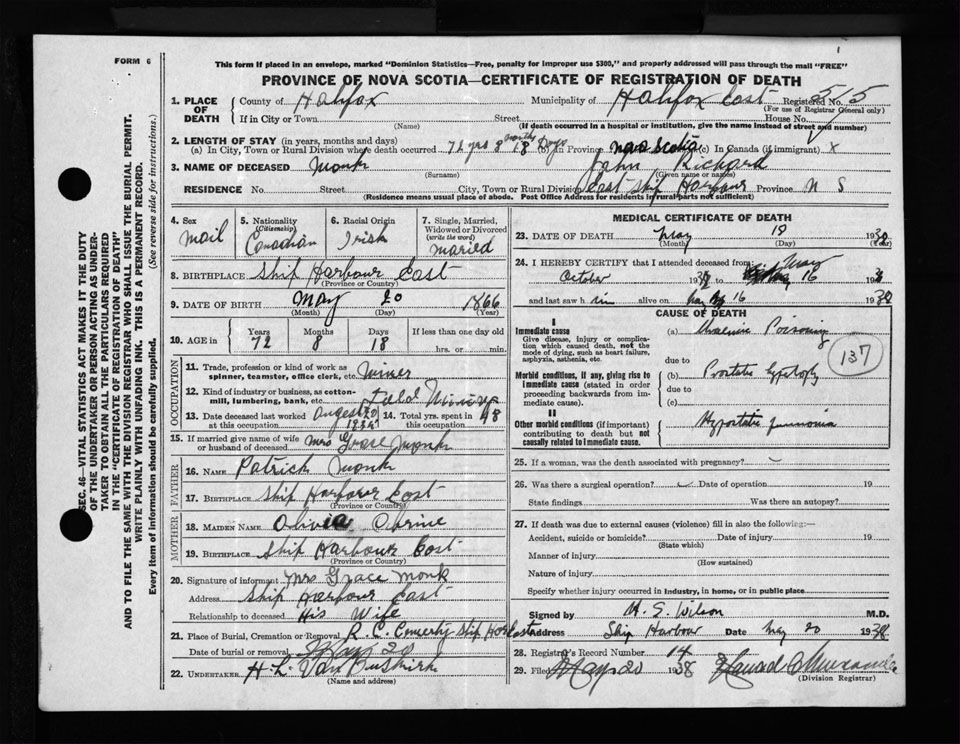 FORM 6
This form if placed in an envelope, marked "Dominion Statistics—Free, penalty for improper use $300," and properly addressed will pass through the mail "FREE"
PROVINCE OF NOVA SCOTIA—CERTIFICATE OF REGISTRATION OF DEATH
SEC. 46—VITAL STATISTICS ACT MAKES IT THE DUTY
OF THE UNDERTAKER OR PERSON ACTING AS UNDER-
TAKER TO OBTAIN ALL THE PARTICULARS REQUIRED
IN THE "CERTIFICATE OF REGISTRATION OF DEATH"
AND TO FILE THE SAME WITH THE DIVISION REGISTRAR WHO SHALL ISSUE THE BURIAL PERMIT.
WRITE PLAINLY WITH UNFADING INK. THIS IS A PERMANENT RECORD.
Every item of information should be carefully supplied. (See reverse side for instructions.)
1. PLACE OF DEATH County of Halifax Municipality of Halifax East Registered No. 515
(For use of Registrar General only)
If in City or Town Street House No.
(Name) (If death occurred in a hospital or institution, give the name instead of street and number)
2. LENGTH OF STAY (in years, months and days)
(a) In City, Town or Rural Division where death occurred 72 yrs 8 months 18 Days (b) In Province Nova Scotia (c) In Canada (if immigrant) x
3. NAME OF DECEASED Monk John Richard
(Surname) (Given name or names)
RESIDENCE No. Street City, Town or Rural Division East Ship Harbour Province N S
(Residence means usual place of abode. Post Office Address for residents in rural parts not sufficient)
4. Sex
Mail
5. Nationality
(Citizenship)
Canadian
6. Racial Origin
Irish
7. Single, Married,
Widowed or Divorced
(write the word)
Maried
8. BIRTHPLACE Ship Harbour East
(Province or Country)
9. DATE OF BIRTH May 20 1866
(Month) (Day) (Year)
10. AGE Years Months Days If less than one day old
72 8 18 hrs. or min.
OCCUPATION
11. Trade, profession or kind of work as
spinner, teamster, office clerk, etc. Miner
12. Kind of industry or business, as cotton-
mill, lumbering, bank, etc. Gold Mining
13. Date deceased last worked
at this occupation
14. Total yrs. spent in
this occupation 48
15. If married give name of wife
or husband of deceased Mrs Grace Monk
FATHER
16. NAME Patrick Monk
17. BIRTHPLACE Ship Harbour East
(Province or Country)
MOTHER
18. MAIDEN NAME Olivia
19. BIRTHPLACE Ship Harbour East
(Province or Country)
20. Signature of informant Mrs Grace Monk
Address Ship Harbour East
Relationship to deceased His Wife
21. Place of Burial, Cremation or Removal R. C. Cemerty Ship Har East
Date of burial or removal May 20
22. UNDERTAKER H L Van Buskirk
(Name and address)
MEDICAL CERTIFICATE OF DEATH
23. DATE OF DEATH May 19 19
(Month) (Day) (Year)
24. I HEREBY CERTIFY that I attended deceased from:
October 19 to May 16 19
and last saw h im alive on May 16 19
CAUSE OF DEATH
I
Immediate cause
Give disease, injury or complica-
tion which caused death, not the
mode of dying, such as heart failure,
asphyxia, asthenia, etc.
(a) Uraemic Poisoning
due to
Morbid conditions, if any, giving rise to
immediate cause (stated in order
proceeding backwards from im-
mediate cause).
(b) Prostatic
due to
(c)
137
II
Other morbid conditions (if important)
contributing to death but not
causally related to immediate cause.
Hypostatic Pneumonia
25. If a woman, was the death associated with pregnancy?
26. Was there a surgical operation? Date of operation 19
State findings Was there an autopsy?
27. If death was due to external causes (violence) fill in also the following:—
Accident, suicide or homicide? Date of injury 19
(State which)
Manner of injury
(How sustained)
Nature of injury
Specify whether injury occurred in industry, in home, or in public place
Signed by H. S. Wilson M.D.
Address Ship Harbour Date May 20 1938
28. Registrar's Record Number 14
29. Filed May 20 1938
(Division Registrar)